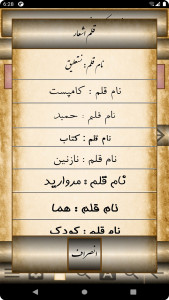 6:28
قلم اشعار
نام قلم : نستعلیق
نام قلم : کامپست
نام قلم : حمید
نام قلم : کتاب
نام قلم : نازنین
نام قلم : مروارید
نام قلم : هما
نام قلم : کودک
انصراف